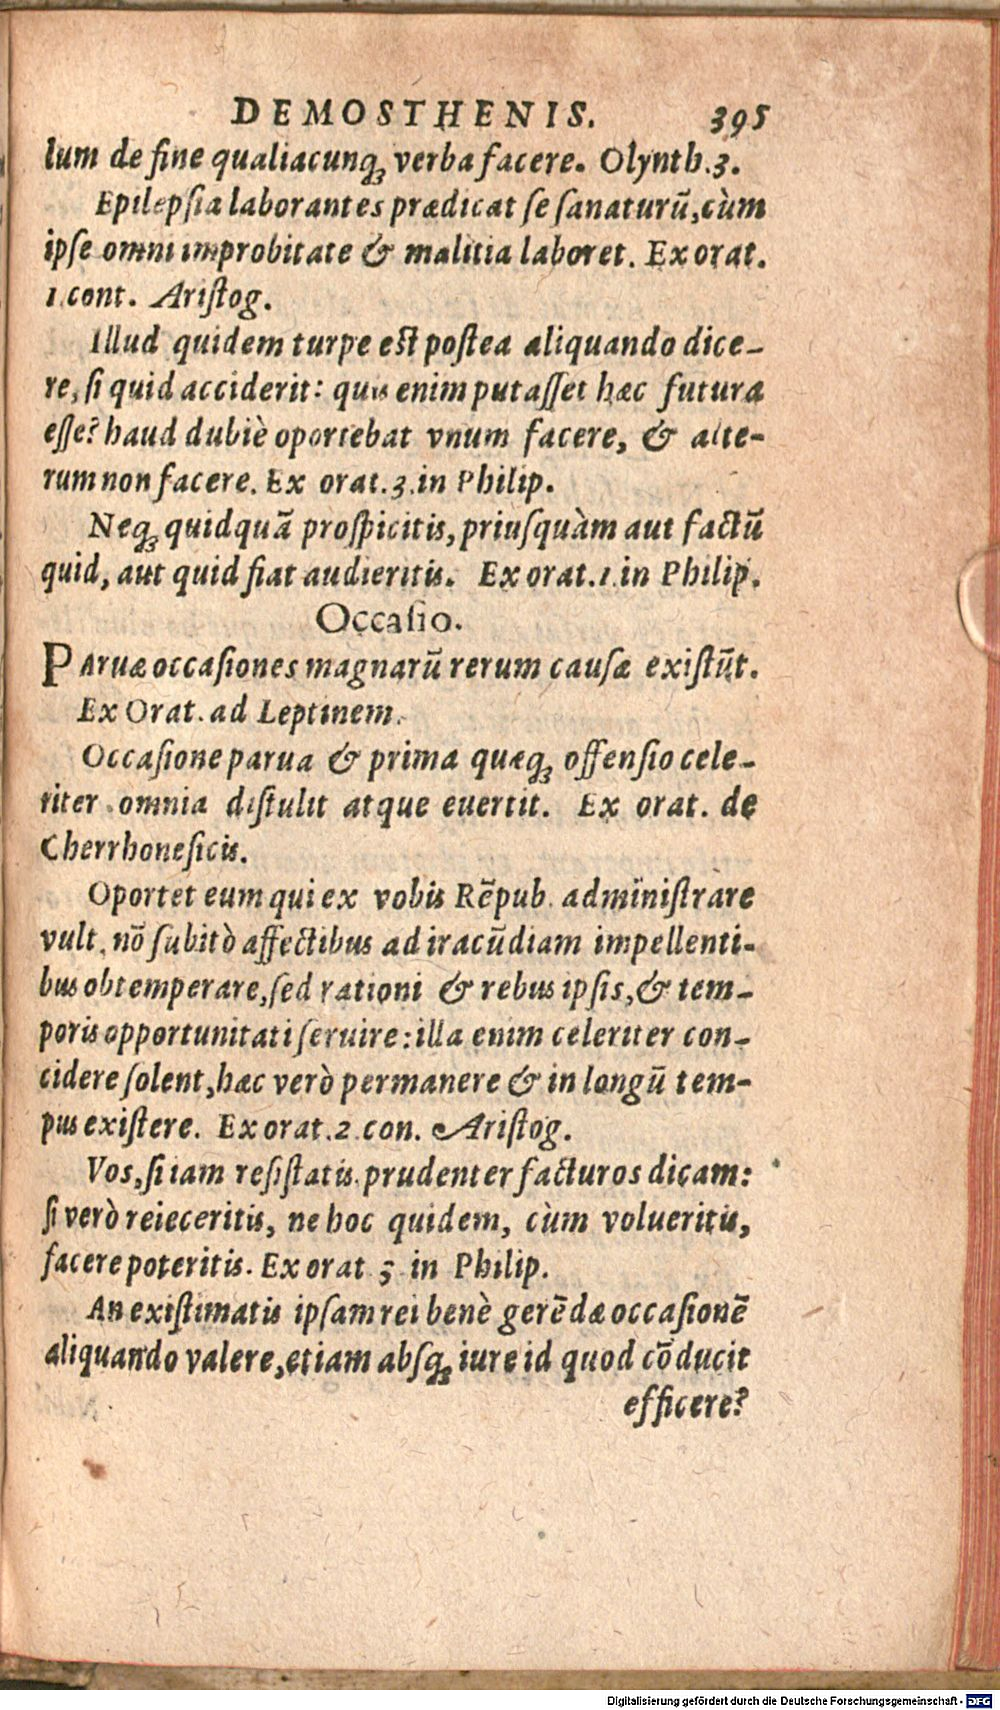 DEMOSTHENIS. 395
lum de fine qualiacunqꝫ verba facere. Olynth.3.
Epilepsia laborantes prædicat se sanaturũ, cùm
ipse omni improbitate & malitia laboret. Ex orat.
1.cont. Aristog.
Illud quidem turpe est postea aliquando dice-
re, si quid acciderit: quis enim putasset hæc futura
esse? haud dubiè oportebat vnum facere, & alte-
rum non facere. Ex orat.3.in Philip.
Neqꝫ quidquã prospicitis, priusquàm aut factũ
quid, aut quid fiat audieritis. Ex orat.1.in Philip.
Occasio.
PAruæ occasiones magnarũ rerum causæ existũt.
Ex Orat. ad Leptinem.
Occasione parua & prima quæqꝫ offensio cele-
riter omnia distulit atque euertit. Ex orat. de
Cherrhonesicis.
Oportet eum qui ex vobis Rẽpub. administrare
vult, nõ subitò affectibus ad iracũdiam impellenti-
bus obtemperare, sed rationi & rebus ipsis, & tem-
poris opportunitati seruire: illa enim celeriter con-
cidere solent, hæc verò permanere & in longũ tem-
pus existere. Ex orat.2.con. Aristog.
Vos, si iam resistatis, prudenter facturos dicam:
si verò reieceritis, ne hoc quidem, cùm volueritis,
facere poteritis. Ex orat 5 in Philip.
An existimatis ipsam rei benè gerẽdæ occasionẽ
aliquando valere, etiam absqꝫ iure id quod cõducit
efficere?
Digitalisierung gefördert durch die Deutsche Forschungsgemeinschaft - DFG